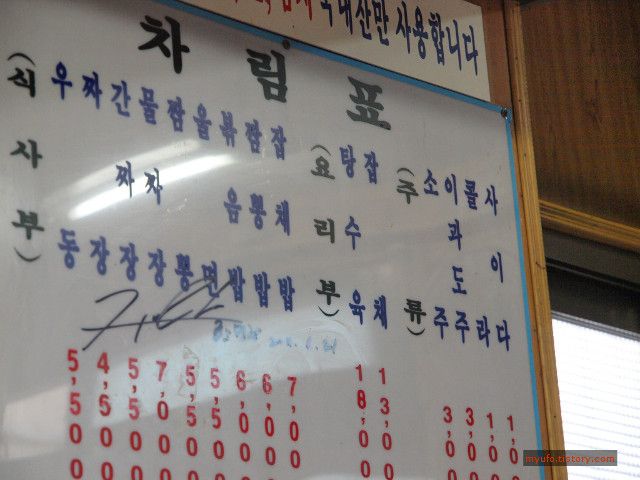 국내산만 사용합니다
차림표
(식사부)
우동 5,500
짜장 4,500
간짜장 5,500
물짜장 7,000
짬뽕 5,500
울면 5,500
볶음밥 6,00
짬뽕밥 6,00
잡채밥 7,00
(요리부)
탕수육 18,00
잡채 13,00
(주류)
소주 3,00
이과도주 3,00
콜라 1,00
사이다 1,00
myufo.tistory.com